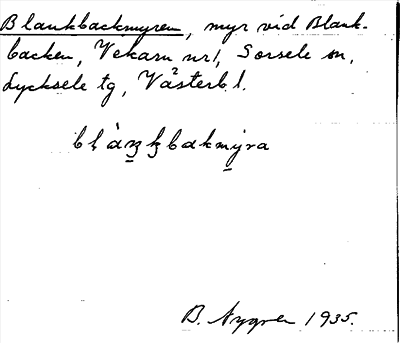 Blankbackmyren, myr vid Blank-
backen, Vekarn nr 1, Sorsele sn,
Lycksele tg, Västerb. l.
B. Nygren 1935.